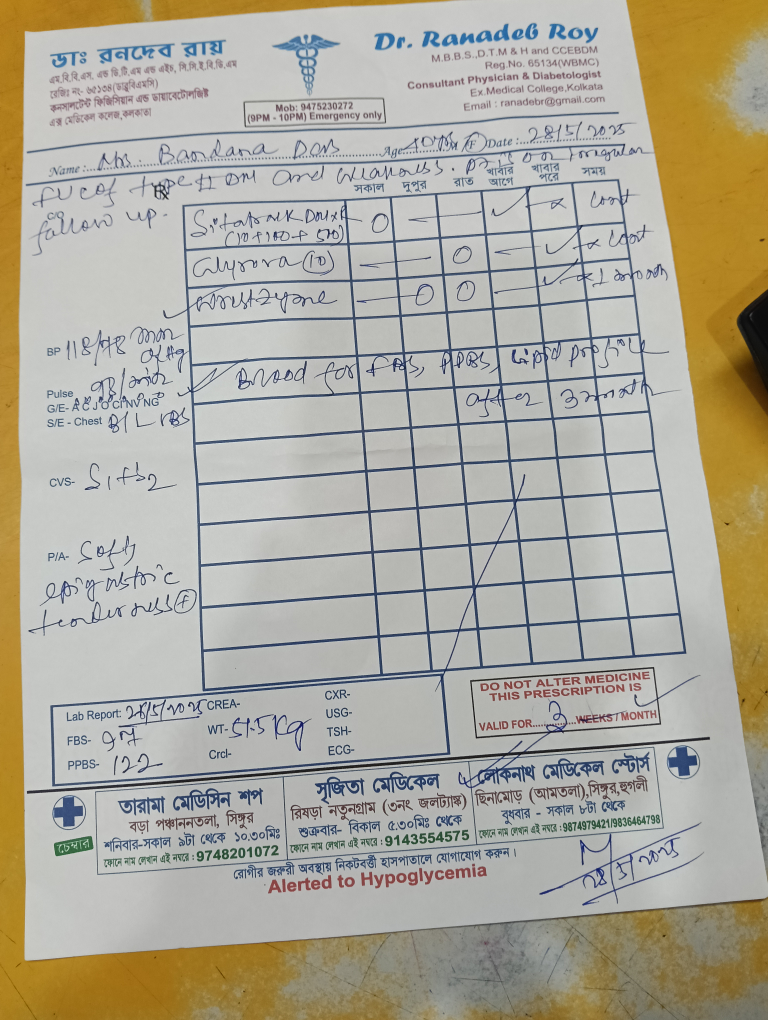 ডাঃ রনদেব রায়
এম.বি.বি.এস. এন্ড ডি.টি.এম এন্ড এইচ, সি.সি.ই.বি.ডি.এম
রেজিঃ নং- ৬৫১৩৪(ডাব্লুবিএমসি)
কনসালটেন্ট ফিজিসিয়ান এন্ড ডায়াবেটোলজিষ্ট
এক্স মেডিকেল কলেজ,কলকাতা
Mob: 9475230272
(9PM - 10PM) Emergency only
Dr. Ranadeb Roy
M.B.B.S.,D.T.M & H and CCEBDM
Reg.No. 65134(WBMC)
Consultant Physician & Diabetologist
Ex.Medical College,Kolkata
Email : ranadebr@gmail.com
Name:.. Mrs Bandana Das Age 40 yrs M/F Date : 28/5/2025
F/U c of type II DM and weakness. Pt is on irregular
follow up.
C/O
সকাল দুপুর রাত খাবার আগে খাবার পরে সময়
(10+100+500) cont
(10) cont
1 month
BP 118/78 mm of Hg
Pulse 98/min
G/E- A C J O Cl NV NG
S/E - Chest B/L VBS
Blood for FBS, PPBS, Lipid profile
after 3 month
CVS- S1+S2
P/A- Soft,
epigastric
tenderness +
Lab Report: 28/5/2025 CREA- CXR-
FBS- 97 WT- 51.5 Kg USG-
PPBS- 122 Crcl- TSH-
ECG-
DO NOT ALTER MEDICINE
THIS PRESCRIPTION IS
VALID FOR 3 WEEKS / MONTH
চেম্বার
তারামা মেডিসিন শপ
বড়া পঞ্চাননতলা, সিঙ্গুর
শনিবার-সকাল ৯টা থেকে ১০.৩০মিঃ
ফোনে নাম লেখান এই নম্বরে : 9748201072
সৃজিতা মেডিকেল
রিষড়া নতুনগ্রাম (৩নং জলট্যাঙ্ক)
শুক্রবার- বিকাল ৫.৩০মিঃ থেকে
ফোনে নাম লেখান এই নম্বরে : 9143554575
লোকনাথ মেডিকেল স্টোর্স
ছিনামোড় (আমতলা),সিঙ্গুর,হুগলী
বুধবার - সকাল ৮টা থেকে
ফোনে নাম লেখান এই নম্বরে : 9874979421/9836464798
রোগীর জরুরী অবস্থায় নিকটবর্ত্তী হাসপাতালে যোগাযোগ করুন।
Alerted to Hypoglycemia
28/5/2025